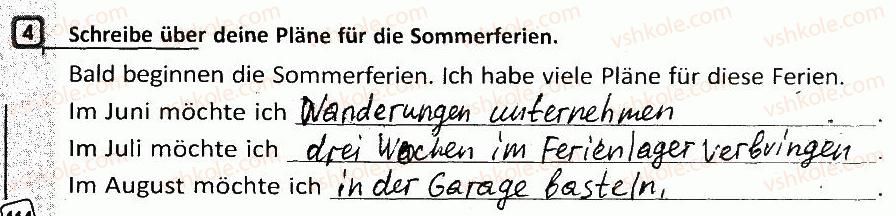 4 Schreibe über deine Pläne für die Sommerferien.
Bald beginnen die Sommerferien. Ich habe viele Pläne für diese Ferien.
Im Juni möchte ich Wanderungen unternehmen.
Im Juli möchte ich drei Wochen im Ferienlager verbringen.
Im August möchte ich in der Garage basteln.